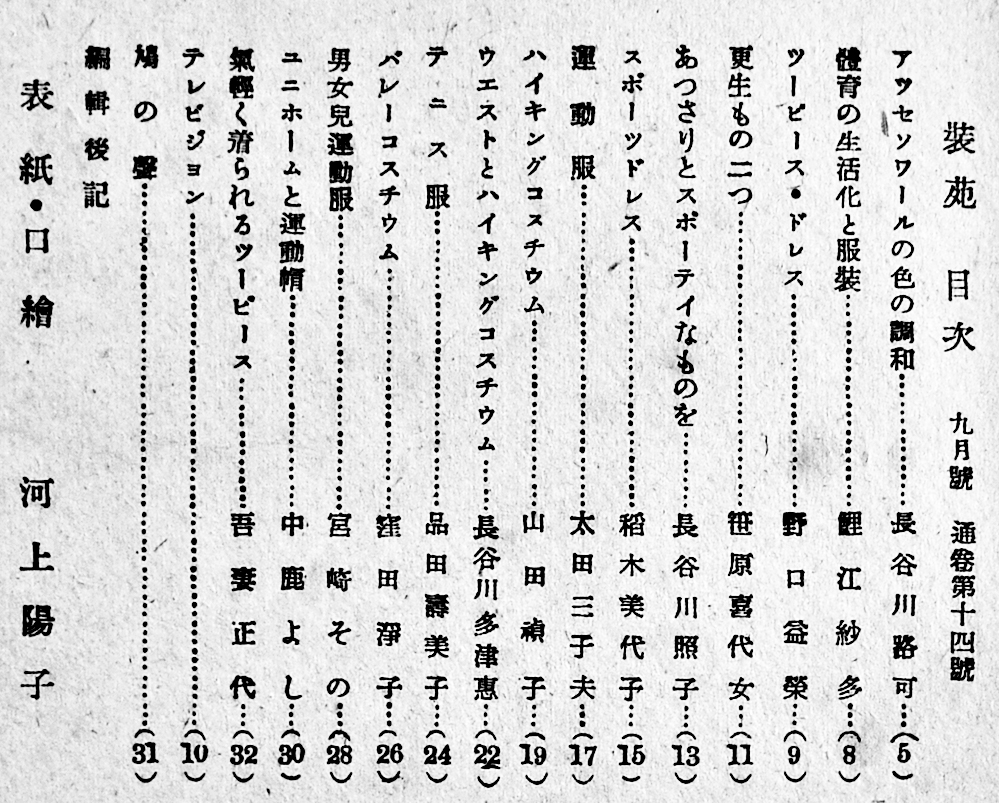 裝苑 目次 九月號 通卷第十四號
アツセソワールの色の調和……長谷川路可……(5)
體育の生活化と服裝……鯉江紗多……(8)
ツーピース・ドレス……野口益榮……(9)
更生もの二つ……笹原喜代女……(11)
あつさりとスポーテイなものを……長谷川照子……(13)
スポーツドレス……稻木美代子……(15)
運動服……太田三子夫……(17)
ハイキングコスチウム……山田禎子……(19)
ウエストとハイキングコスチウム……長谷川多津惠……(22)
テニス服……品田壽美子……(24)
バレーコスチウム……窪田淨子……(26)
男女兒運動服……宮崎その……(28)
ユニホームと運動帽……中鹿よし……(30)
氣輕く着られるツーピース……吾妻正代……(32)
テレビジョン……(10)
鳩の聲……(31)
編輯後記
表紙・口繪 河上陽子